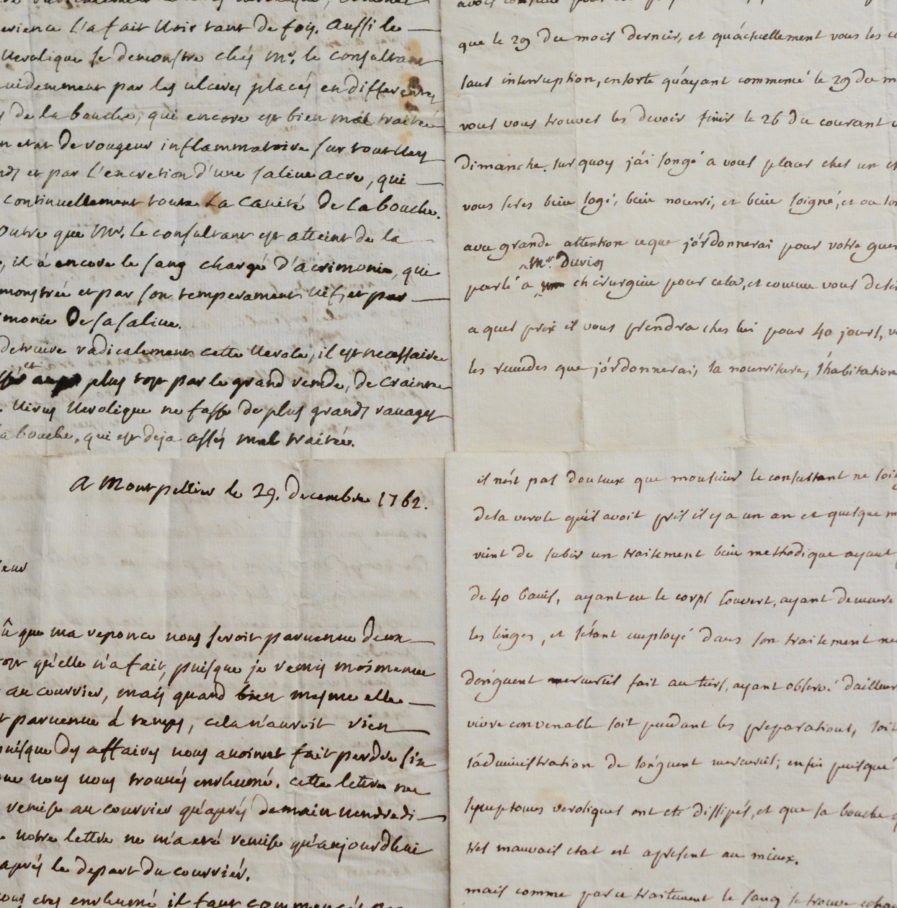 erience l'a fait voir tant de fois. aussi le
verolique se demonstre chés Mr. le consultant
evidemment par les ulceres placés en differentes
de la bouche, qui encore est bien mal traitée
etat de rougeur inflammatoire sur tout
et par l'excretion d'une salive acre, qui
continuellement toute la cavité de la bouche.
Outre que Mr. le consultant est atteint de la
il a encore le sang chargé d'acrimonie, qui
monstrée et par son temperament vif, et par
imonie de sa salive.
detruire radicalement cette verole, il est necessaire
plus tost par le grand remede, de crainte
virus verolique ne fasse de plus grands ravages
la bouche, qui est deja assés mal traitée.
que le 29 du mois dernier, et qu'actuellement vous les
sans interruption, ensorte qu'ayant commencé le 29 du
vous vous trouvés les devoir finir le 26 du courant
dimanche. surquoy j'ai songé a vous placer chez un
vous serés bien logé, bien nourri, et bien soigné, et ou
avec grande attention ce que j'ordonnerai pour votre
Mr. Duvies
parlé a chirurgien pour cela, et comme vous
a quel prix il vous prendra chez lui pour 40 jours,
les remedes que j'ordonnerai, la nourriture, l'habitation
A Montpellier le 29. Decembre 1762.
ieur
que ma reponce vous seroit parvenue deux
qu'elle n'a fait, puisque je remis moi mesme
au courrier, mais quand bien mesme elle
parvenue á temps, cela n'auroit rien
puisque des affaires vous avoient fait perdre
vous vous trouvés enrhumé. cette lettre ne
remise au courrier qu'aprés demain vendredi
votre lettre ne m'a eté remise qu'aujourdhui
aprés le depart du courrier.
vous etes enrhumé il faut commencer
il n'est pas douteux que monsieur le consultant ne soit
de la verole qu'il avoit pris il y a un an et quelque
vient de subir un traitement bien methodique ayant
de 40 bains, ayant eu le corps couvert, ayant demeuré
les linges, et s'etant employé dans son traitement
d'onguent mercuriel fait au tiers, ayant observé d'ailleurs
vivre convenable soit pendant les preparations, soit
l'administration de l'onguent mercuriel; enfin puisque
symptomes veroliques ont eté dissipés, et que sa bouche
tres mauvais etat est apresent au mieux.
mais comme par ce traitement le sang se trouve